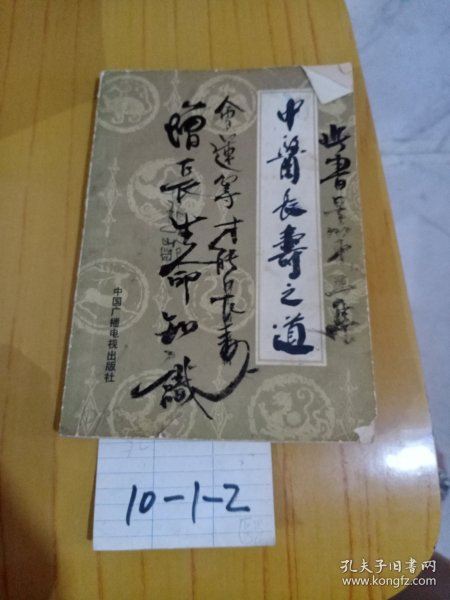 中醫长壽之道
會運笔才能長壽
增長生命知識
此書是
中国广播电视出版社
10-1-2
孔夫子旧书网
www.kongfz.com